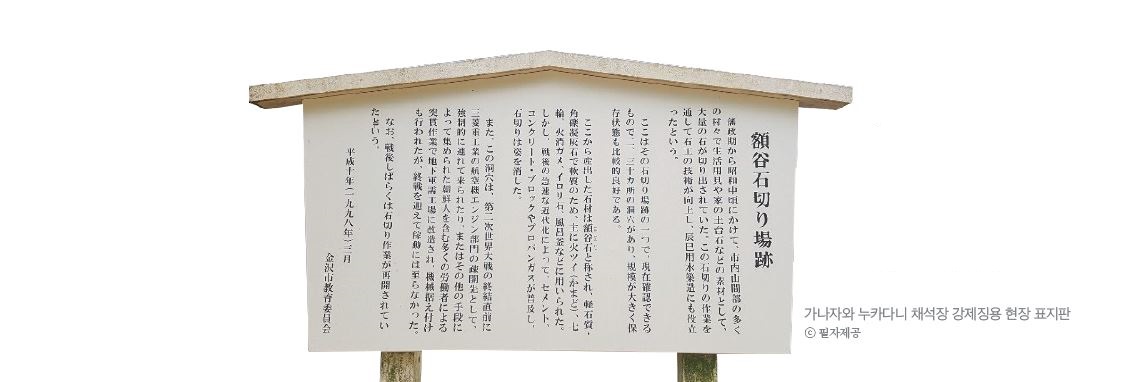 額谷石切り場跡
藩政期から昭和中頃にかけて、市内山間部の多く
の村々で生活用具や家の土台石などの素材として、
大量の石が切り出されていた。この石切りの作業を
通して石工の技術が向上し、辰巳用水築造にも役立
ったという。
ここはその石切り場跡の一つで、現在確認できる
もので二、三十カ所の洞穴があり、規模が大きく保
存状態も比較的良好である。
ここから産出した石材は額谷石と称され、軽石質
角礫凝灰石で軟質のため、主に火ツイ(かまど)、七
輪、火消ガメ、イロリ石、風呂釜などに用いられた。
しかし、戦後の急速な近代化によって、セメント、
コンクリート・ブロックやプロパンガスが普及し、
石切りは姿を消した。
また、この洞穴は、第二次世界大戦の終結直前に
三菱重工業の航空機エンジン部門の疎開先として、
強制的に連れて来られたり、またはその他の手段に
よって集められた朝鮮人を含む多くの労働者による
突貫作業で地下軍需工場に改造され、機械据え付け
も行われたが、終戦を迎えて稼動には至らなかった。
なお、戦後しばらくは石切り作業が再開されてい
たという。
平成十年(一九九八年)三月
金沢市教育委員会
가나자와 누카다니 채석장 강제징용 현장 표지판
ⓒ 필자제공